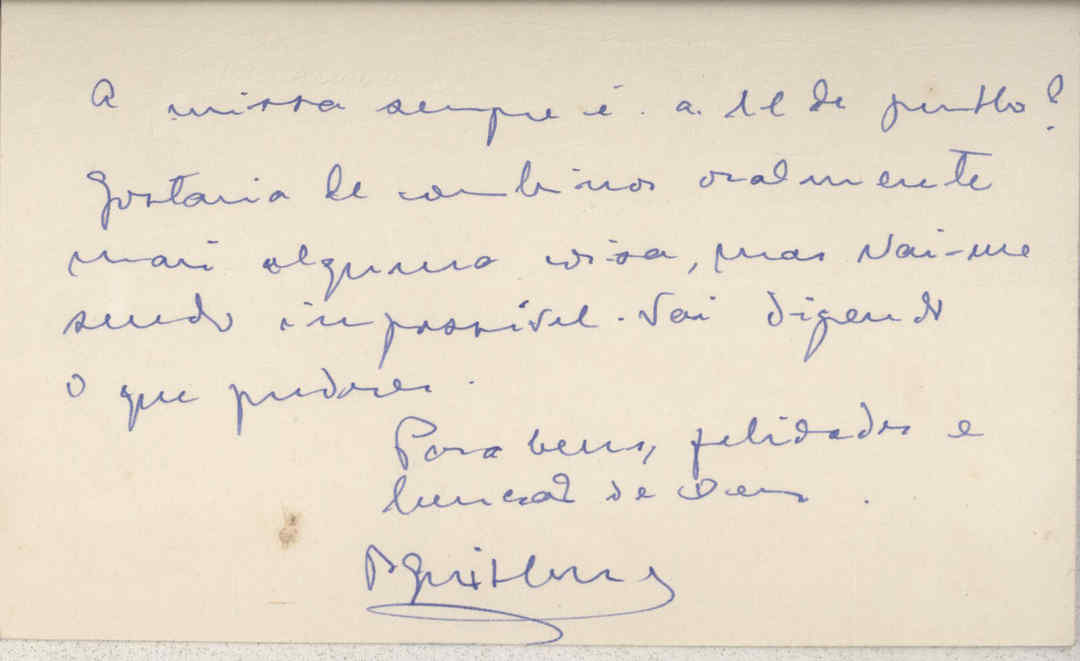 A missa sempre é a 11 de junho?
Gostaria de combinar oralmente
mais alguma coisa, mas vai-me
sendo impossível. Vai dizendo
o que puderes.
Parabens, felicidades e
bençãos de Deus.